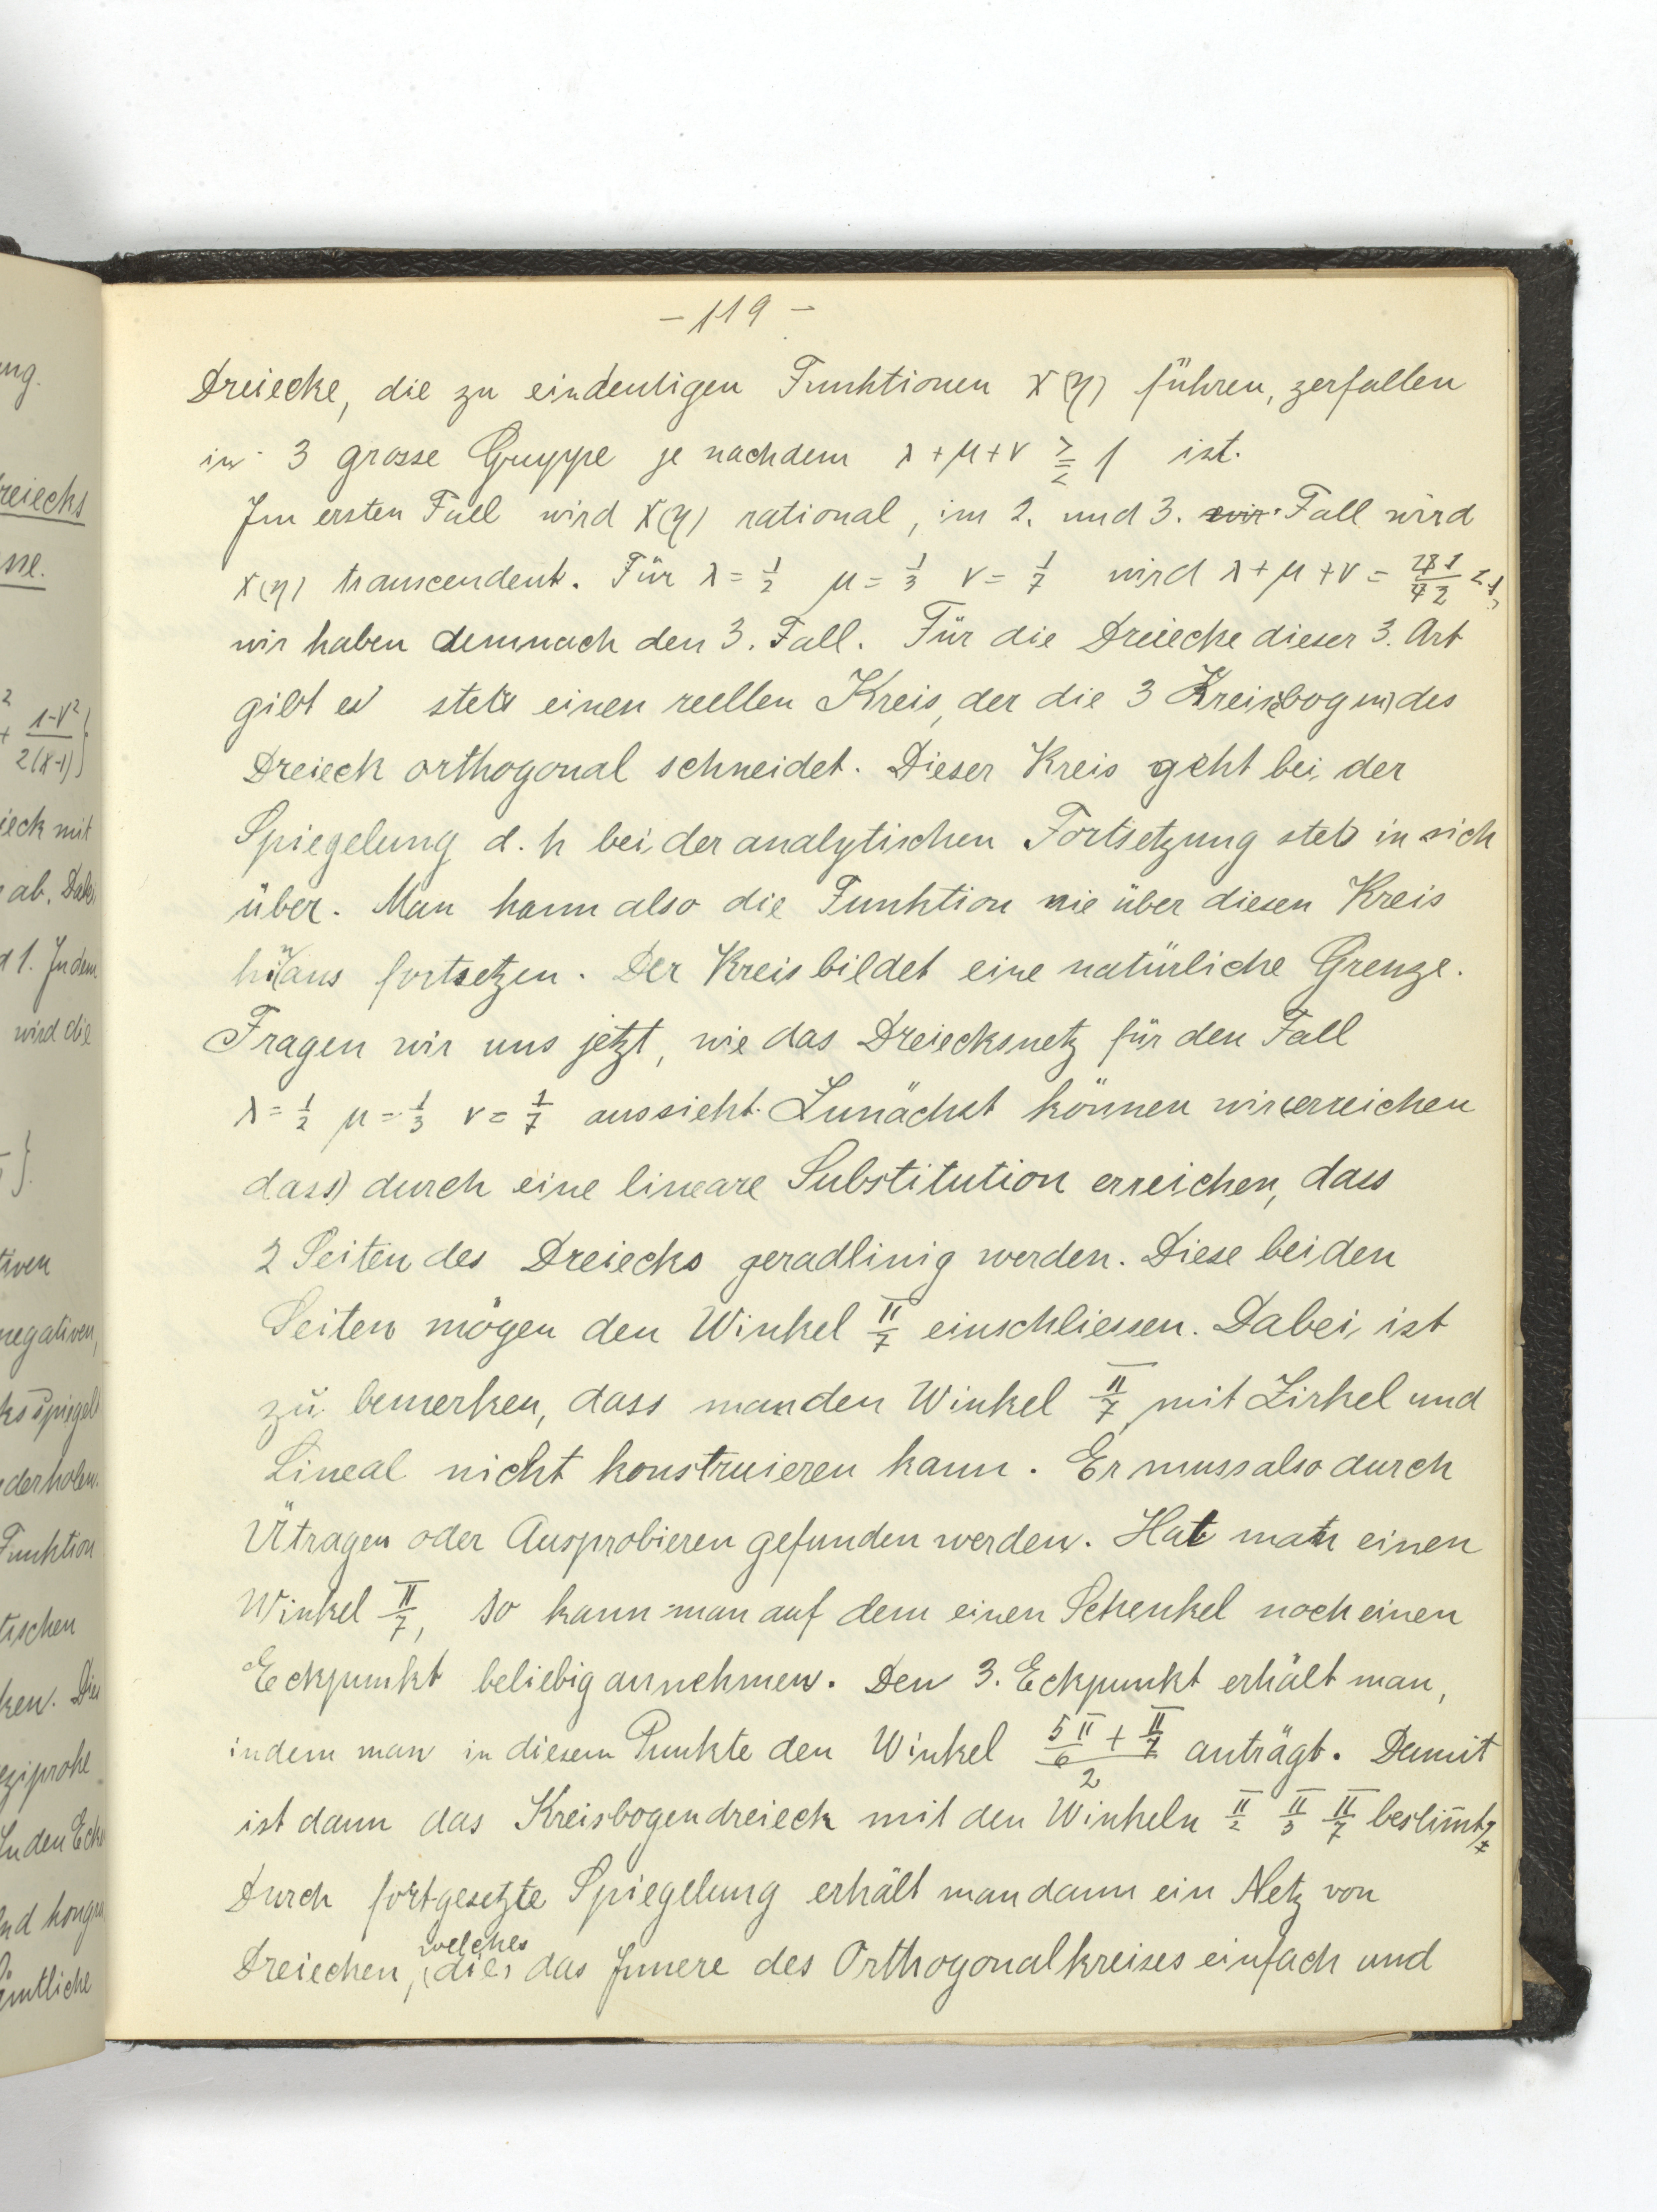 - 119 -
Dreiecke, die zu eindeutigen Funktionen x(η) führen, zerfallen
in 3 grosse Gruppe je nachdem λ+μ+ν ⪌ 1 ist.
Im ersten Fall wird x(η) rational, im 2. und 3. wir Fall wird
x(η) transcendent. Für λ = 1/2 μ = 1/3 ν = 1/7 wird λ+μ+ν = 41/42 < 1,
wir haben demnach den 3. Fall. Für die Dreiecke dieser 3. Art
gibt es stets einen reellen Kreis, der die 3 Kreisbogen des
Dreieck orthogonal schneidet. Dieser Kreis geht bei der
Spiegelung d. h bei der analytischen Fortsetzung stets in sich
über. Man kann also die Funktion nie über diesen Kreis
hinaus fortsetzen. Der Kreis bildet eine natürliche Grenze.
Fragen wir uns jetzt, wie das Dreiecksnetz für den Fall
λ = 1/2 μ = 1/3 ν = 1/7 aussieht. Zunächst können wir (erreichen
dass) durch eine lineare Substitution erreichen, dass
2 Seiten des Dreiecks geradlinig werden. Diese beiden
Seiten mögen den Winkel π/7 einschliessen. Dabei ist
zu bemerken, dass man den Winkel π/7 mit Zirkel und
Lineal nicht konstruieren kann. Er muss also durch
Ütragen oder Ausprobieren gefunden werden. Hat man einen
Winkel π/7, so kann man auf dem einen Schenkel noch einen
Eckpunkt beliebig annehmen. Den 3. Eckpunkt erhält man,
indem man in diesem Punkte den Winkel (5π/6 + π/7)/2 anträgt. Damit
ist dann das Kreisbogendreieck mit den Winkeln π/2 π/3 π/7 bestim̄t
Durch fortgesetzte Spiegelung erhält man dann ein Netz von
Dreiecken, (die) welches das Innere des Orthogonalkreises einfach und
ung.
reiecks
sse.
2
+ 1-ν²/2(x-1) }
ieck mit
ab. Dabei
d 1. Indem
wird die
}.
tiven
negativen,
ks spiegelt
derholen.
Funktion
tischen
ken. Die
eziproke
In den Eck
nd kongru
ämtliche